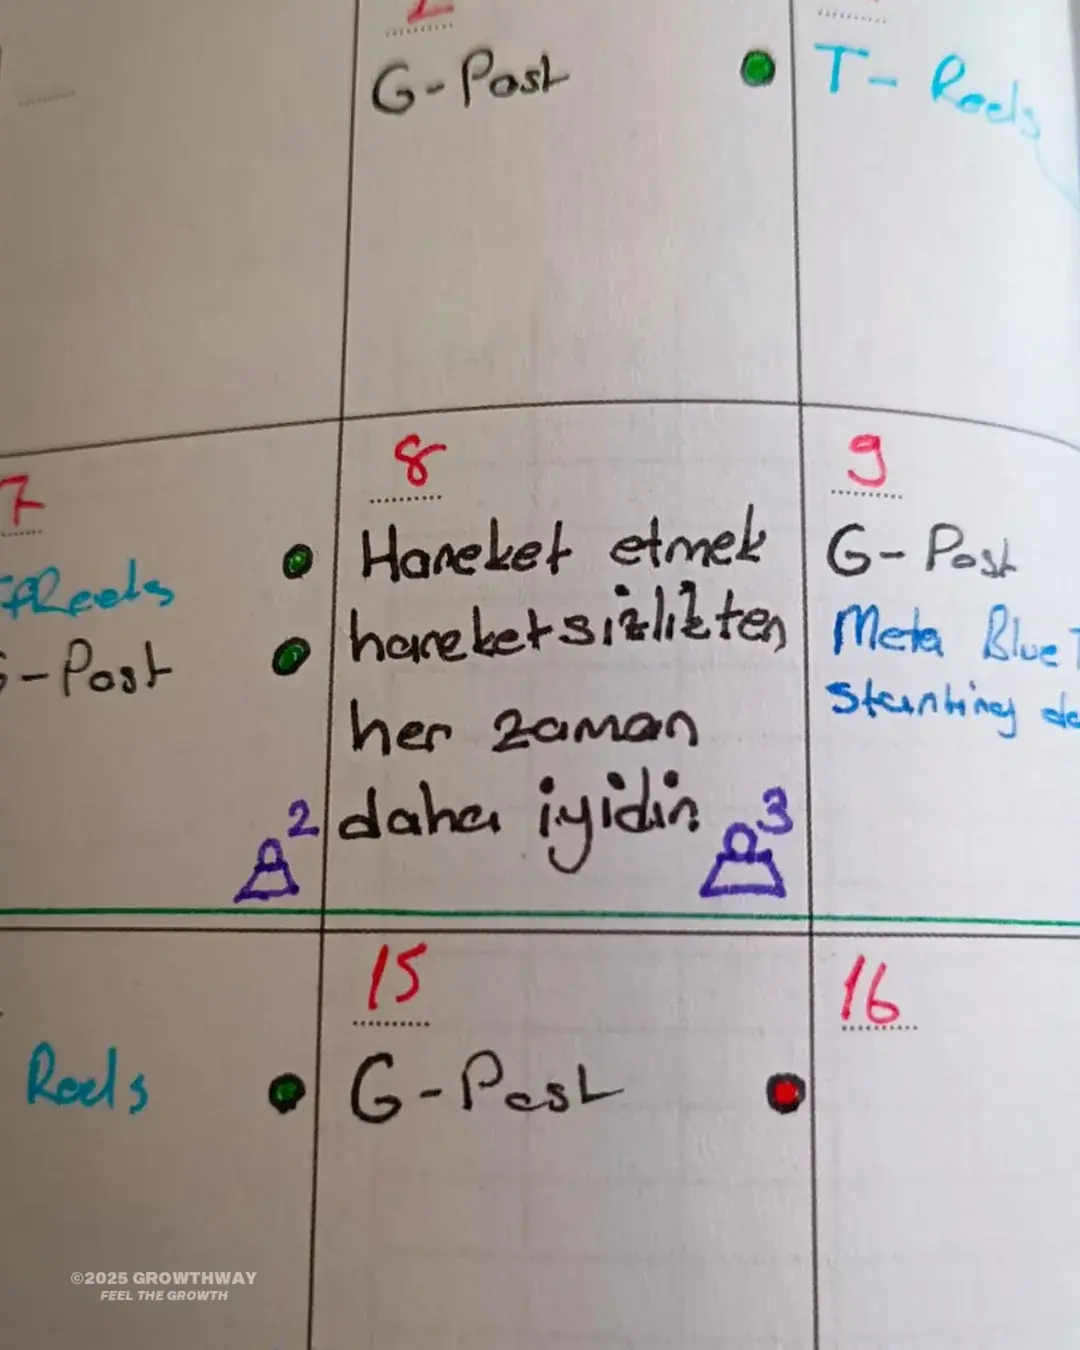 G-Post
T- Reels
7
Reels
G-Post
2
8
Hareket etmek
hareketsizlikten
her zaman
daha iyidir.
3
9
G- Post
Meta Blue
Starting
Reels
15
G-Post
16
©2025 GROWTHWAY
FEEL THE GROWTH